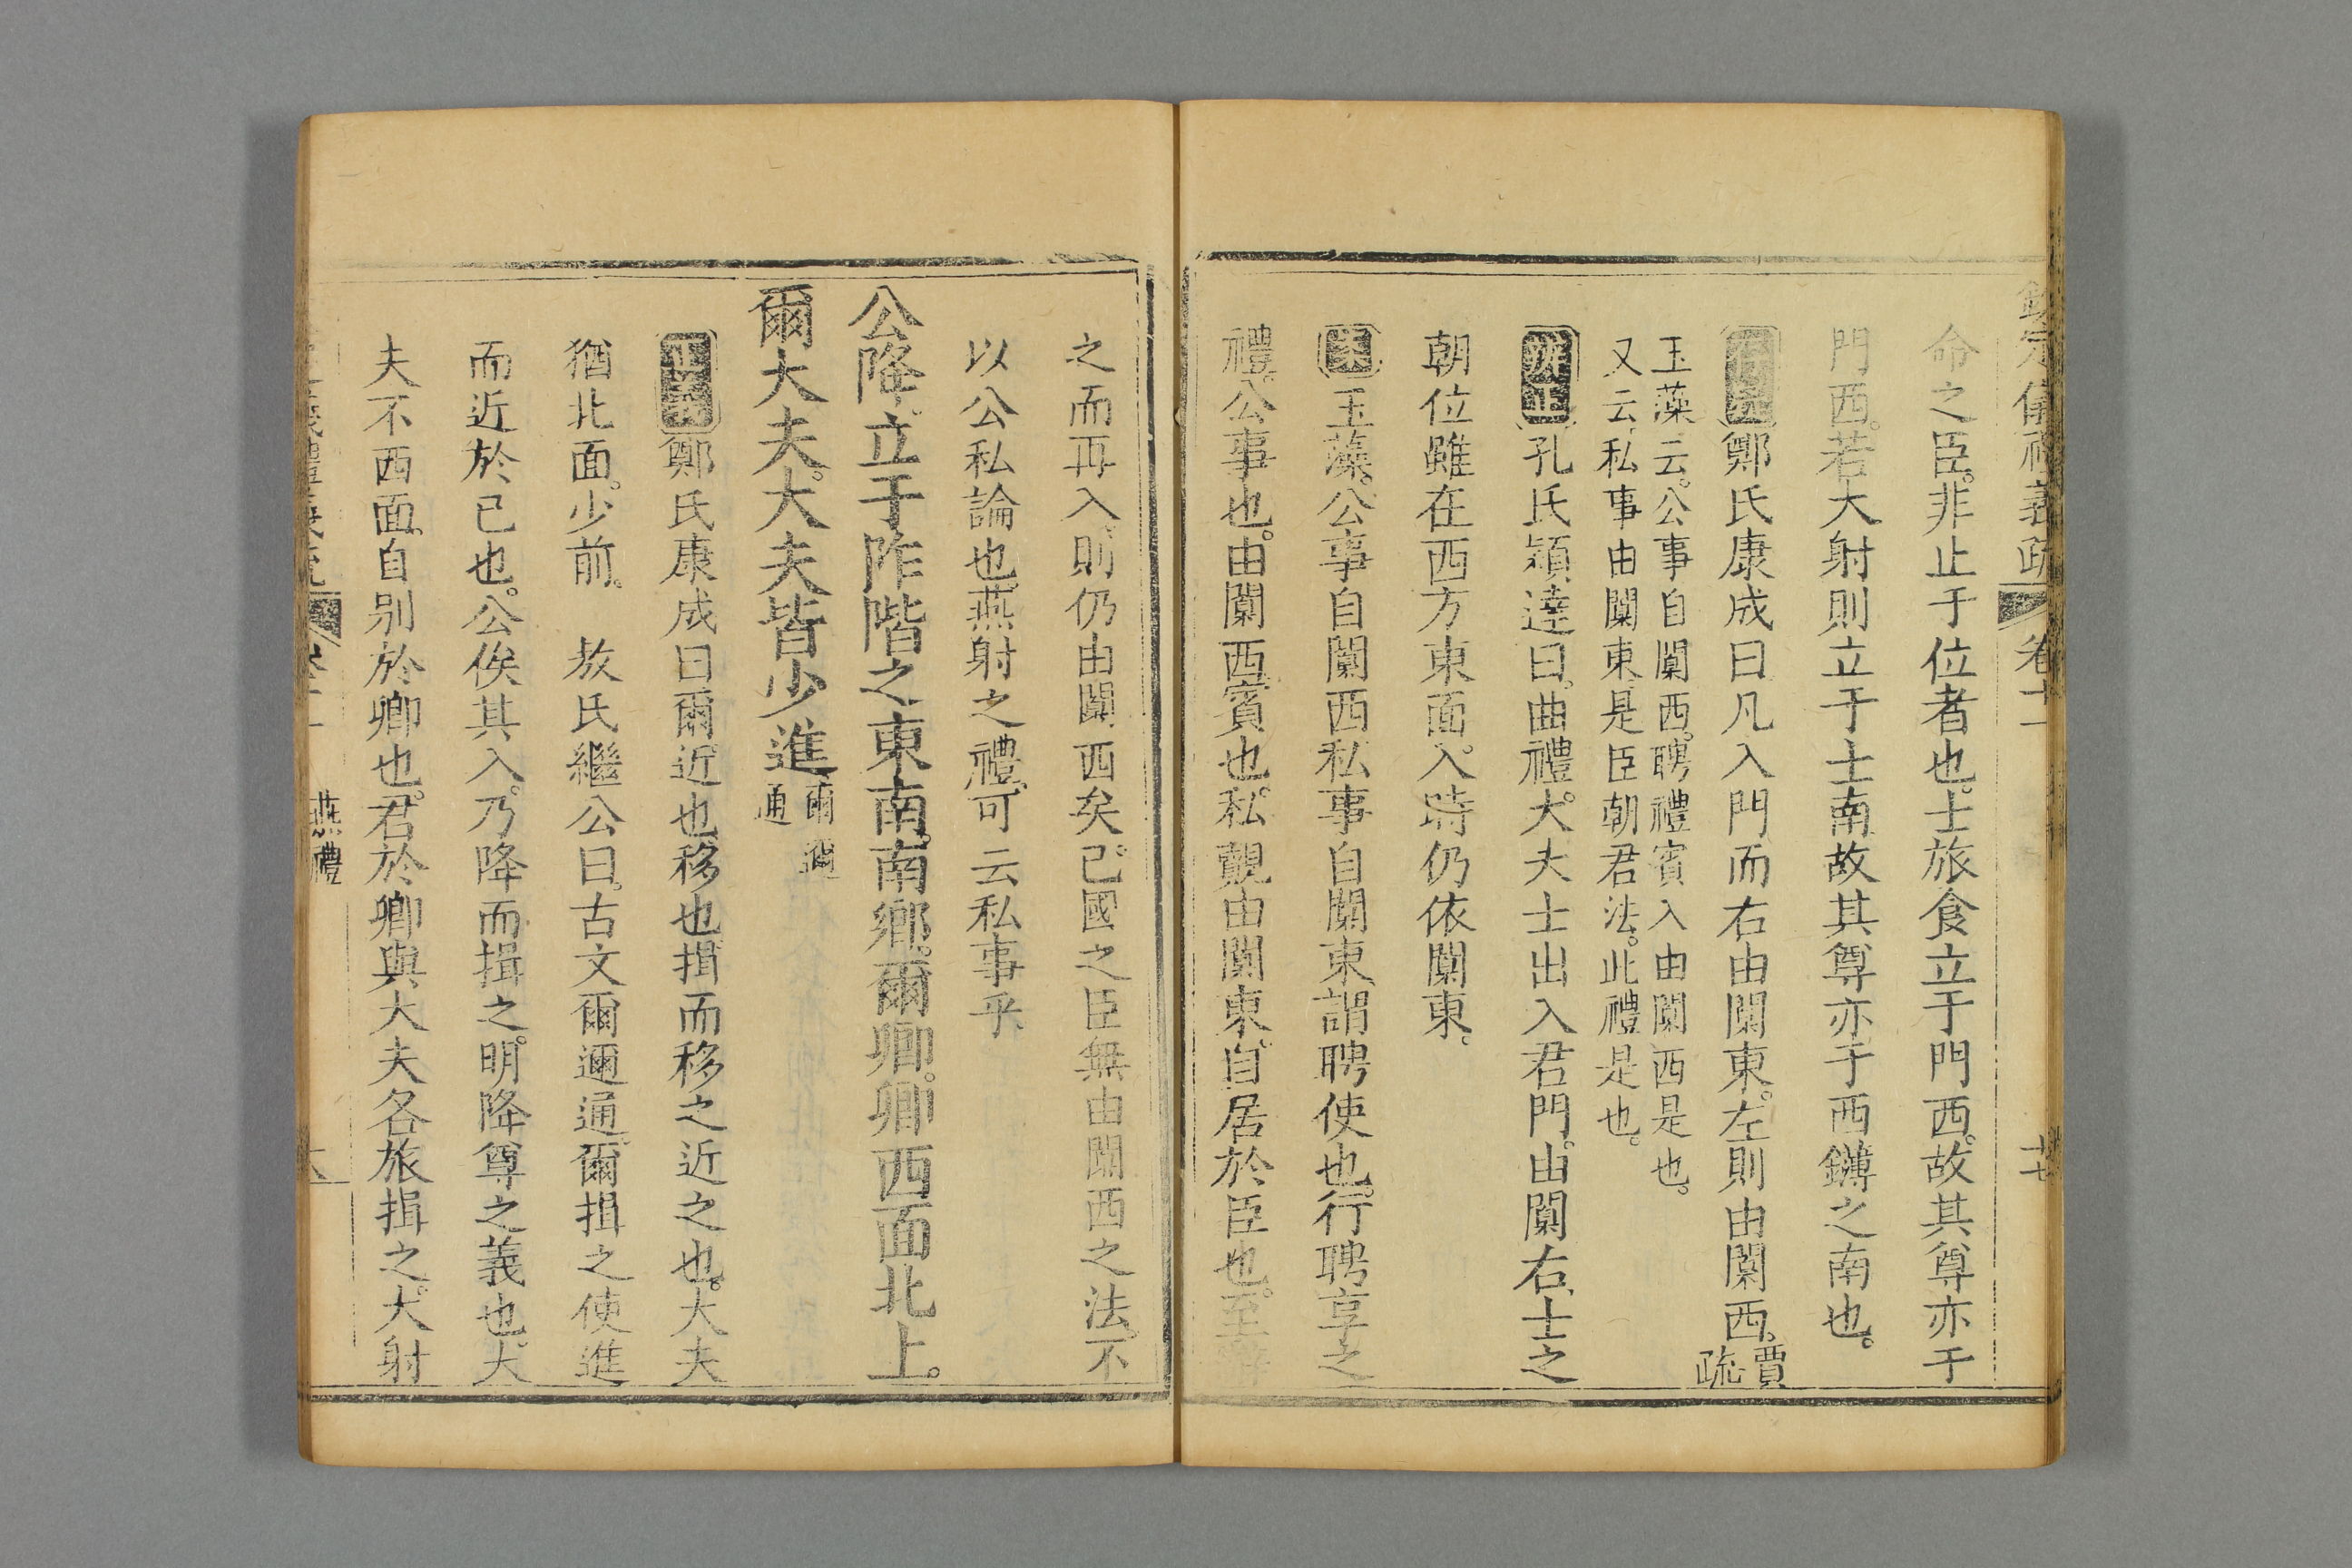 欽定儀禮義疏 卷十一
命之臣。非止于位者也。士旅食立于門西。故其尊亦于
門西。若大射則立于士南。故其尊亦于西鑮之南也。
鄭氏康成曰凡入門而右由闑東。左則由闑西。賈疏
玉藻云。公事自闑西。聘禮賓入由闑西是也。
又云私事由闑東是臣朝君法。此禮是也。
辨正孔氏穎達曰。曲禮。大夫士出入君門。由闑右。士之
朝位雖在西方東面。入時仍依闑東。
案玉藻。公事自闑西私事自闑東。謂聘使也。行聘享之
禮。公事也。由闑西。賓也。私覿由闑東。自居於臣也。至辭
之而再入則仍由闑西矣。己國之臣無由闑西之法。不
以公私論也。燕射之禮。可云私事乎。
公降。立于阼階之東南。南鄉。爾卿。卿西面北上。
爾大夫。大夫皆少進爾邇
通
正義鄭氏康成曰爾近也。移也。揖而移之近之也。大夫
猶北面。少前。 敖氏繼公曰。古文爾邇通。爾揖之使進
而近於己也。公俟其入。乃降而揖之。明降尊之義也。大
夫不西面。自別於卿也。君於卿與大夫各旅揖之。大射
燕禮